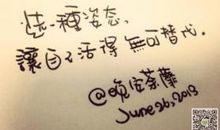 造一種姿态,
讓自己活得無可替代.
@晚安荼蘼
June 26, 2013